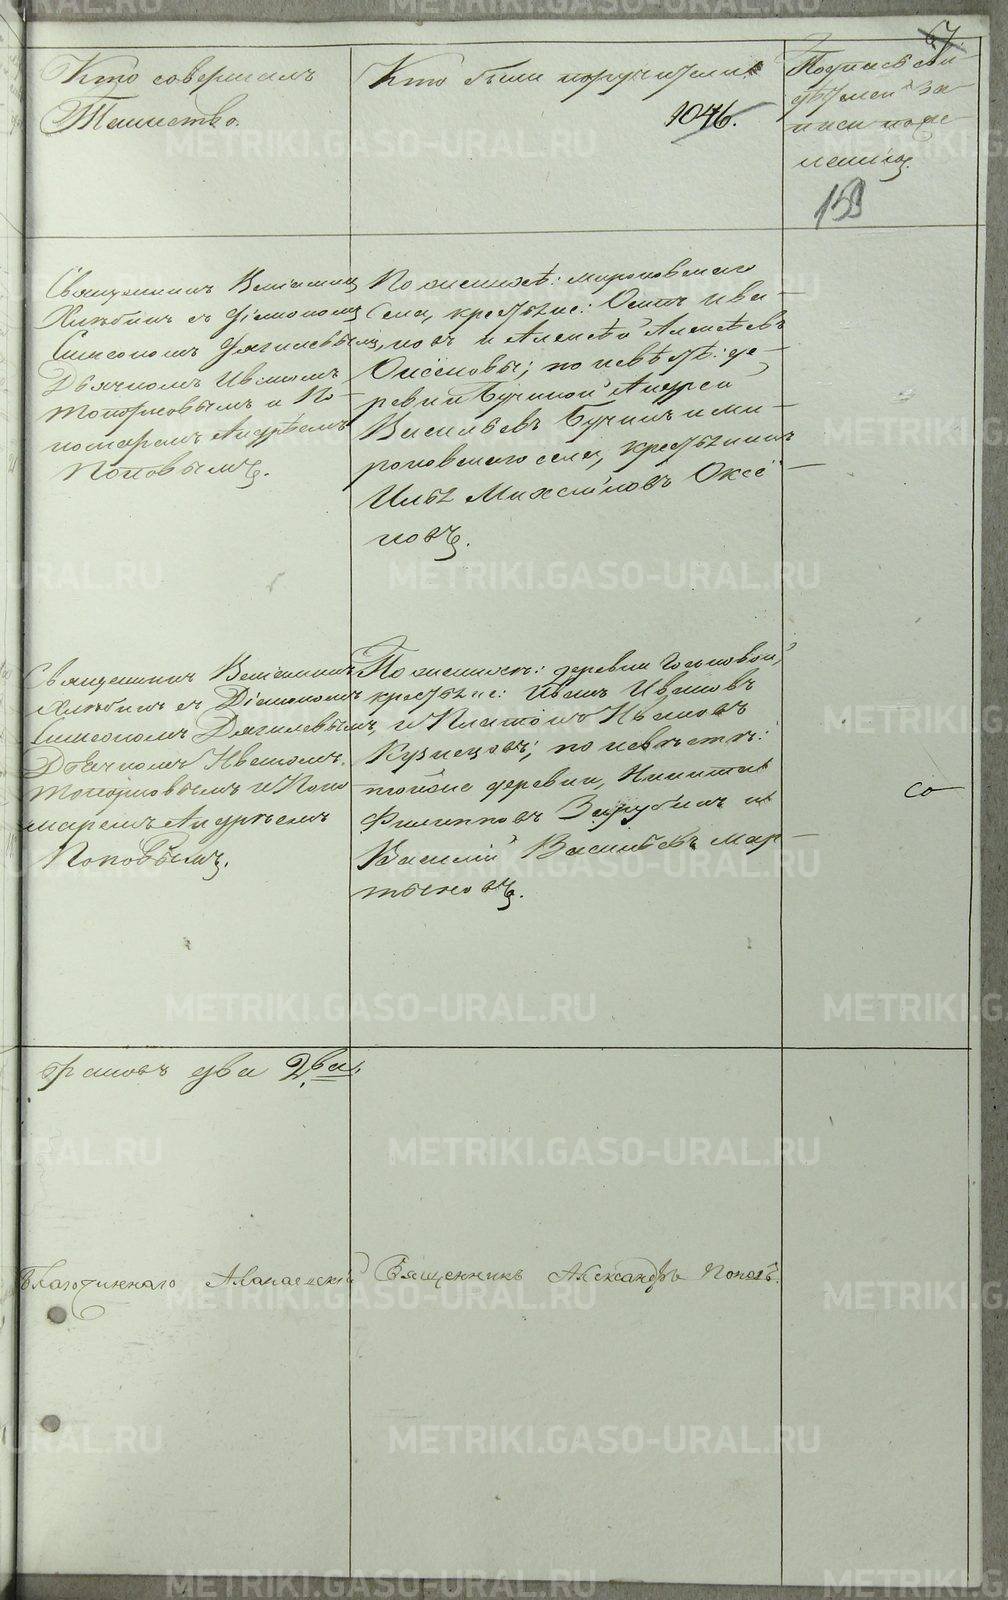 67.
Кто совершалъ
Таинство.
Кто были поручители.
1046.
Подпись сви-
дѣтелей за-
писи по же-
ланію.
159
Священникъ Веніаминъ
Хлѣбинъ съ Діакономъ
Симеономъ Удягилевымъ,
Дьячкомъ Иваномъ
Топорковымъ и По-
номаремъ Андреемъ
Поповымъ.
По женихѣ: мироновскаго
села, крестьяне: Осипъ Ива-
новъ и Алексѣй Алексѣевъ
Оксёновы; по невѣстѣ: де-
ревни Бучиной Андрей
Васильевъ Бучинъ и ми-
роновскаго села, крестьянинъ
Илья Михайловъ Оксё-
новъ.
Священникъ Веніаминъ
Хлѣбинъ съ Діакономъ
Симеономъ Дягилевымъ,
Дьячкомъ Иваномъ
Топорковымъ и Поно
маремъ Андреемъ
Поповымъ.
По женихѣ: деревни
крестьяне: Иванъ Ивановъ
и Платонъ Ивановъ
Кузнецовъ; по невѣстѣ:
тойже деревни, Никита
Филипповъ Зарубинъ и
Василій Васильевъ Мар-
тыновъ.
со
браковъ два Два.
Благочиннаго Алапаевскій Священникъ Александръ Поповъ.
METRIKI.GASO-URAL.RU